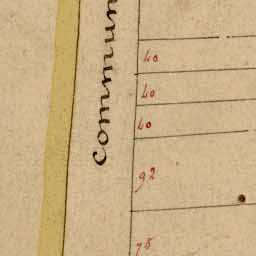 commun
40
40
40
92
75